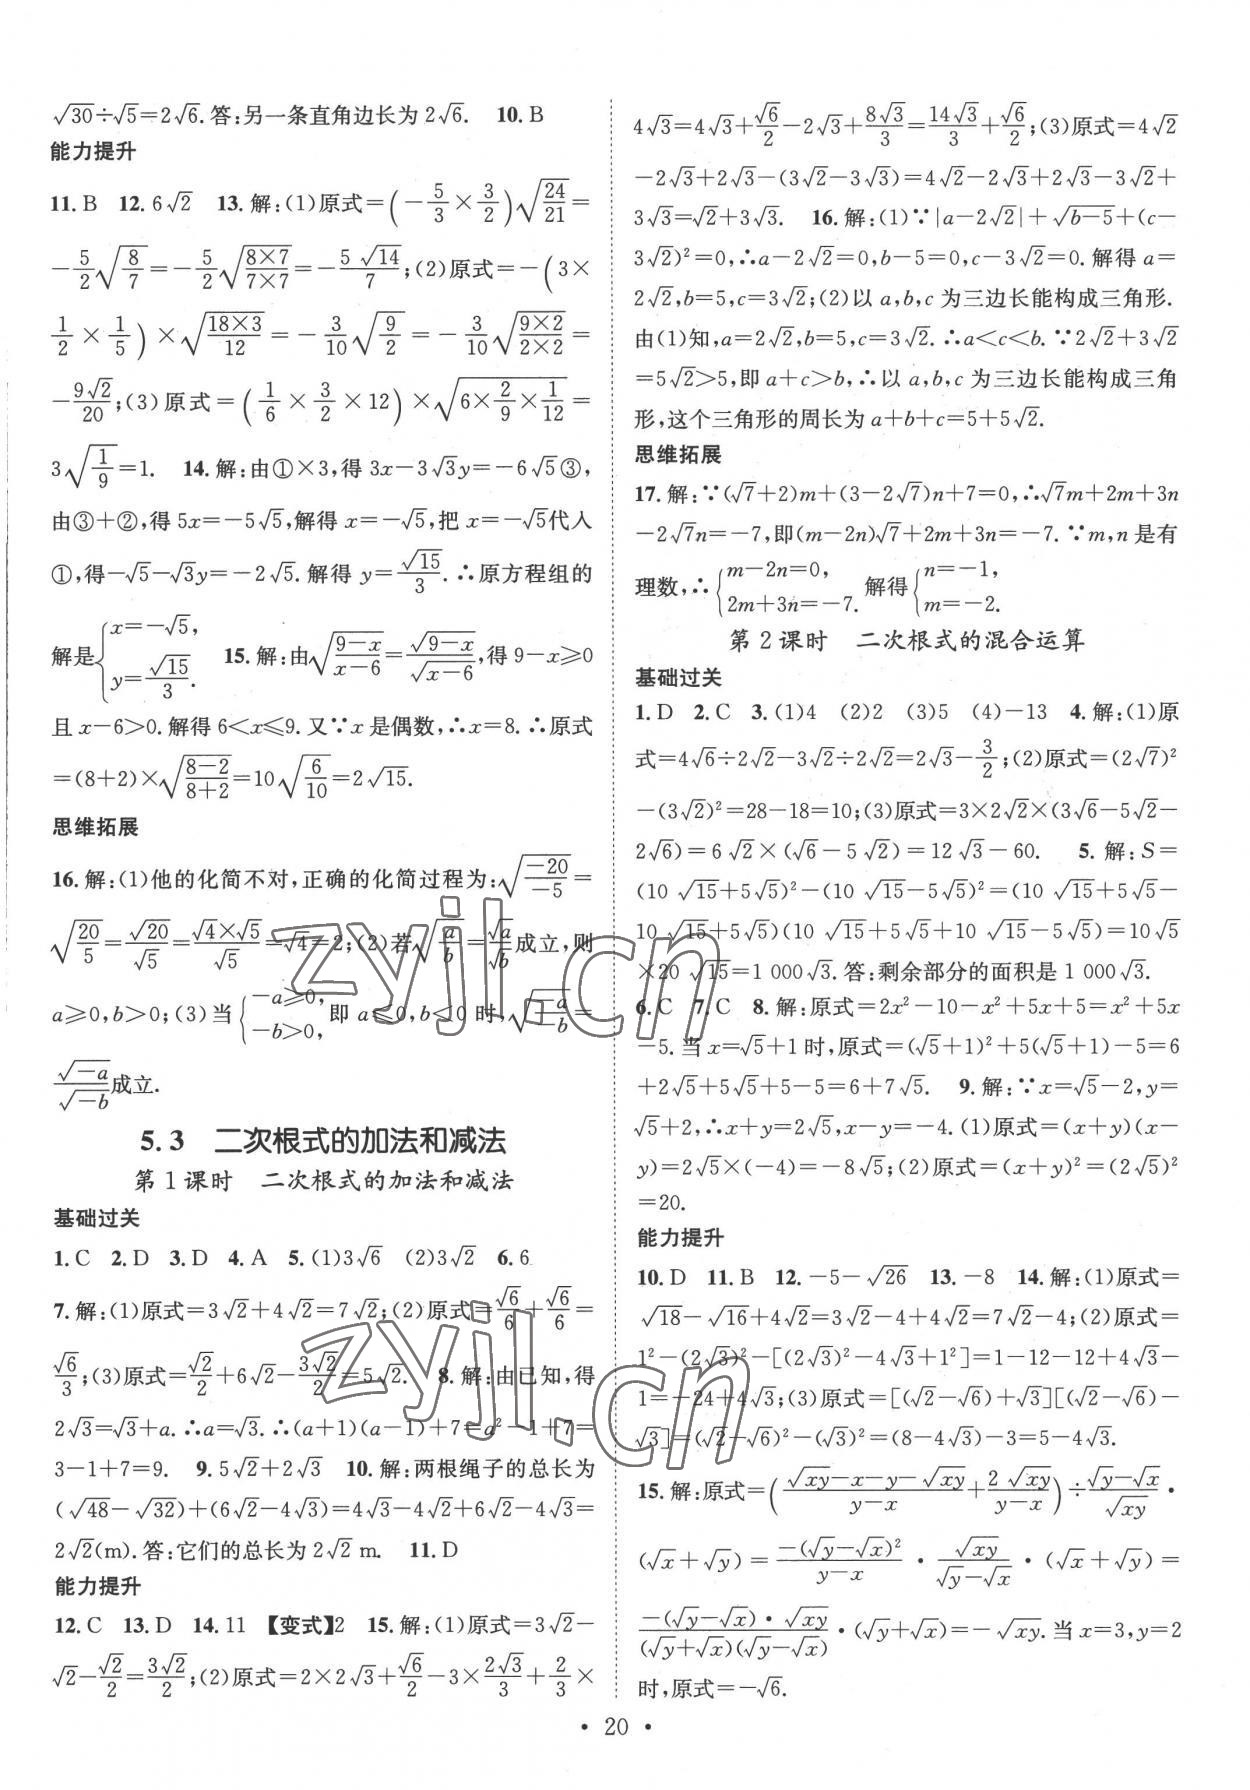 √30÷√5=2√6.答:另一条直角边长为 2√6. 10. B
能力提升
11. B 12. 6√2 13. 解:(1)原式=(-5/3×3/2)√(24/21)=
-5/2√(8/7)=-5/2√((8×7)/(7×7))=-(5√14)/7;(2)原式=-(3×
1/2×1/5)×√((18×3)/12)=-3/10√(9/2)=-3/10√((9×2)/(2×2))=
-(9√2)/20;(3)原式=(1/6×3/2×12)×√(6×2/9×1/12)=
3√(1/9)=1. 14. 解:由①×3,得 3x-3√3y=-6√5③,
由③+②,得 5x=-5√5,解得 x=-√5,把 x=-√5代入
①,得-√5-√3y=-2√5.解得 y=√15/3.∴原方程组的
解是{x=-√5, y=√15/3. 15. 解:由√((9-x)/(x-6))=√(9-x)/√(x-6),得 9-x≥0
且 x-6>0.解得 6<x≤9.又∵x 是偶数,∴x=8.∴原式
=(8+2)×√((8-2)/(8+2))=10√(6/10)=2√15.
思维拓展
16. 解:(1)他的化简不对,正确的化简过程为:√(-20/-5)=
√(20/5)=√20/√5=(√4×√5)/√5=√4=2;(2)若√(a/b)=√a/√b成立,则
a≥0,b>0;(3)当{-a≥0, -b>0,即 a≤0,b<0 时,√(-a/-b)=
√-a/√-b成立.
5.3 二次根式的加法和减法
第 1 课时 二次根式的加法和减法
基础过关
1. C 2. D 3. D 4. A 5. (1)3√6 (2)3√2 6. 6
7. 解:(1)原式=3√2+4√2=7√2;(2)原式=√6/6+√6/6=
√6/3;(3)原式=√2/2+6√2-(3√2)/2=5√2. 8. 解:由已知,得
2√3=√3+a.∴a=√3.∴(a+1)(a-1)+7=a²-1+7=
3-1+7=9. 9. 5√2+2√3 10. 解:两根绳子的总长为
(√48-√32)+(6√2-4√3)=4√3-4√2+6√2-4√3=
2√2(m).答:它们的总长为 2√2 m. 11. D
能力提升
12. C 13. D 14. 11 【变式】2 15. 解:(1)原式=3√2-
√2-√2/2=(3√2)/2;(2)原式=2×2√3+√6/2-3×(2√3)/3+2/3×
4√3=4√3+√6/2-2√3+(8√3)/3=(14√3)/3+√6/2;(3)原式=4√2
-2√3+2√3-(3√2-3√3)=4√2-2√3+2√3-3√2+
3√3=√2+3√3. 16. 解:(1)∵|a-2√2|+√(b-5)+(c-
3√2)²=0,∴a-2√2=0,b-5=0,c-3√2=0.解得 a=
2√2,b=5,c=3√2;(2)以 a,b,c 为三边长能构成三角形.
由(1)知,a=2√2,b=5,c=3√2.∴a<c<b.∵2√2+3√2
=5√2>5,即 a+c>b,∴以 a,b,c 为三边长能构成三角
形,这个三角形的周长为 a+b+c=5+5√2.
思维拓展
17. 解:∵(√7+2)m+(3-2√7)n+7=0,∴√7m+2m+3n
-2√7n=-7,即(m-2n)√7+2m+3n=-7.∵m,n 是有
理数,∴{m-2n=0, 2m+3n=-7. 解得{n=-1, m=-2.
第 2 课时 二次根式的混合运算
基础过关
1. D 2. C 3. (1)4 (2)2 (3)5 (4)-13 4. 解:(1)原
式=4√6÷2√2-3√2÷2√2=2√3-3/2;(2)原式=(2√7)²
-(3√2)²=28-18=10;(3)原式=3×2√2×(3√6-5√2-
2√6)=6√2×(√6-5√2)=12√3-60. 5. 解:S=
(10√15+5√5)²-(10√15-5√5)²=(10√15+5√5-
10√15+5√5)(10√15+5√5+10√15-5√5)=10√5
×20√15=1 000√3.答:剩余部分的面积是 1 000√3.
6. C 7. C 8. 解:原式=2x²-10-x²+5x+5=x²+5x
-5.当 x=√5+1 时,原式=(√5+1)²+5(√5+1)-5=6
+2√5+5√5+5-5=6+7√5. 9. 解:∵x=√5-2,y=
√5+2,∴x+y=2√5,x-y=-4.(1)原式=(x+y)(x-
y)=2√5×(-4)=-8√5;(2)原式=(x+y)²=(2√5)²
=20.
能力提升
10. D 11. B 12. -5-√26 13. -8 14. 解:(1)原式=
√18-√16+4√2=3√2-4+4√2=7√2-4;(2)原式=
1²-(2√3)²-[(2√3)²-4√3+1²]=1-12-12+4√3-
1=-24+4√3;(3)原式=[(√2-√6)+√3][(√2-√6)-
√3]=(√2-√6)²-(√3)²=(8-4√3)-3=5-4√3.
15. 解:原式=((√xy-x-y-√xy)/(y-x)+(2√xy)/(y-x))÷(√y-√x)/√xy·
(√x+√y)=-(√y-√x)²/(y-x)·√xy/(√y-√x)·(√x+√y)=
(-(√y-√x)·√xy)/((√y+√x)(√y-√x))·(√y+√x)=-√xy.当 x=3,y=2
时,原式=-√6.
· 20 ·
zyjl.cn
zyjl.cn